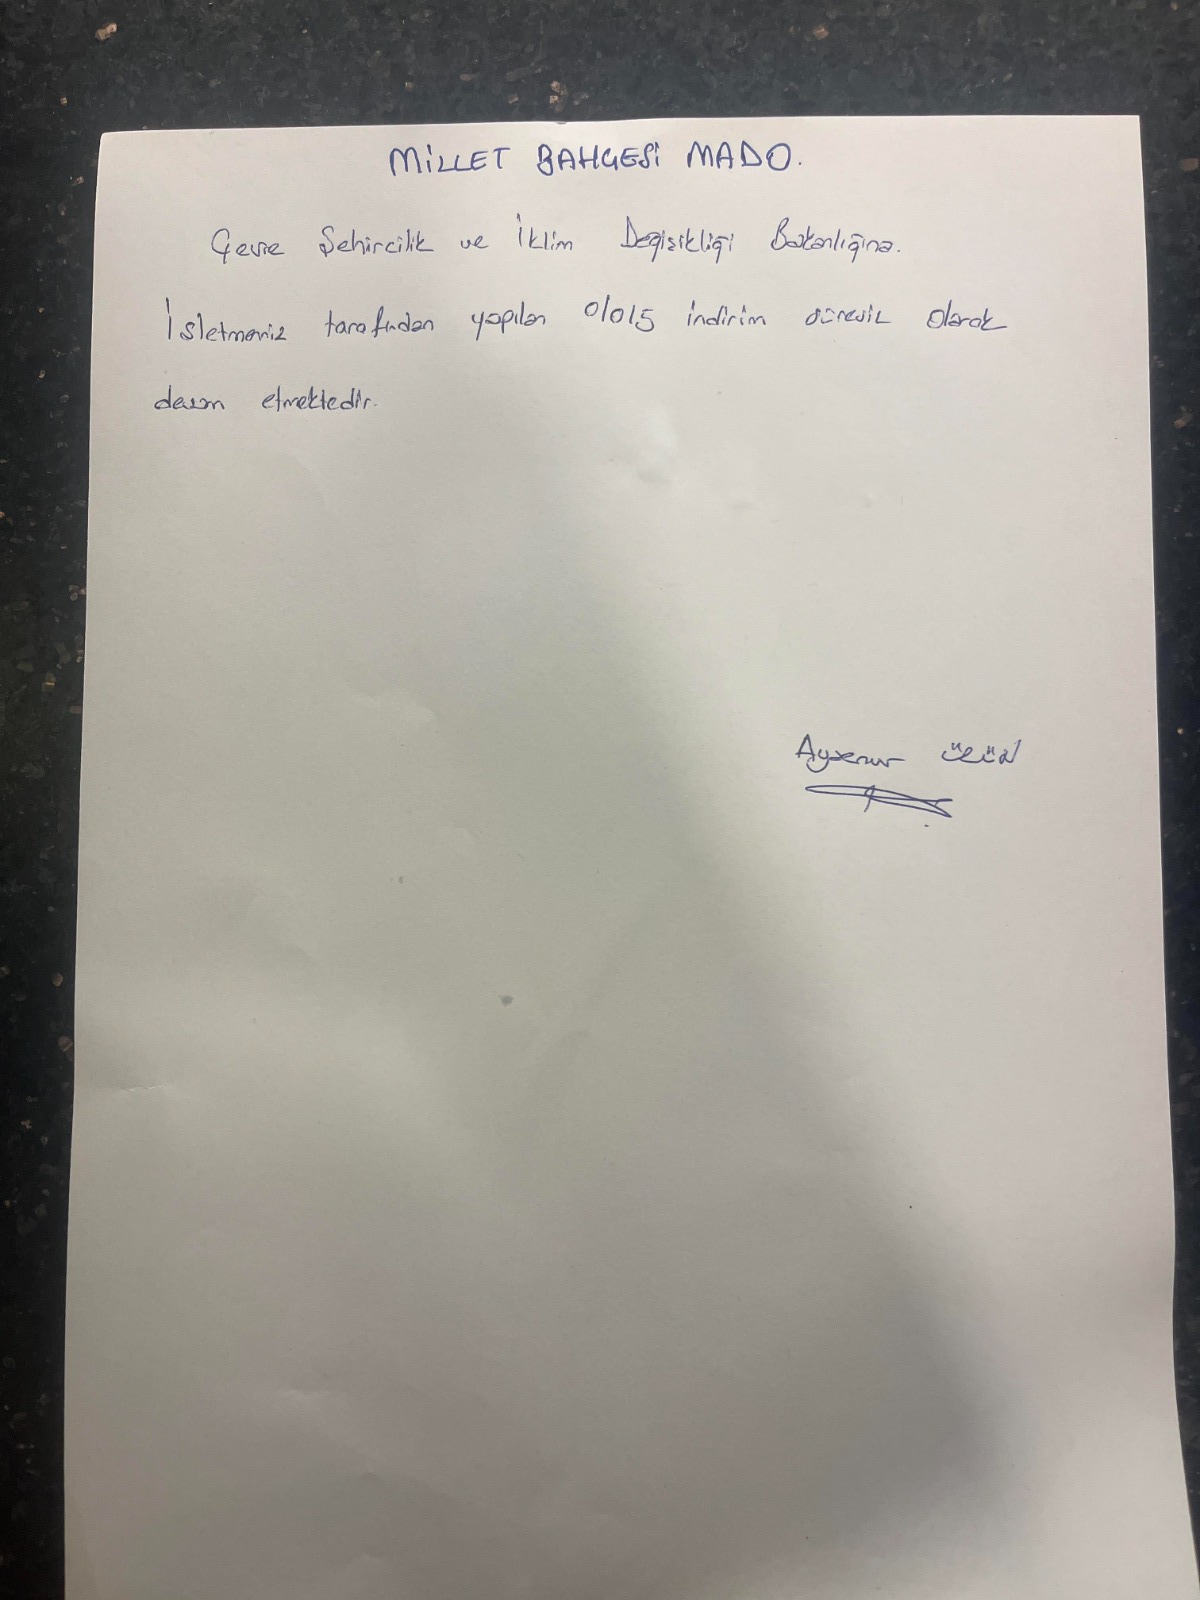 MİLLET BAHÇESİ MADO.
Çevre Şehircilik ve İklim Değişikliği Bakanlığına.
İşletmemiz tarafından yapılan %15 indirim süresiz olarak
devam etmektedir.
Ayşenur